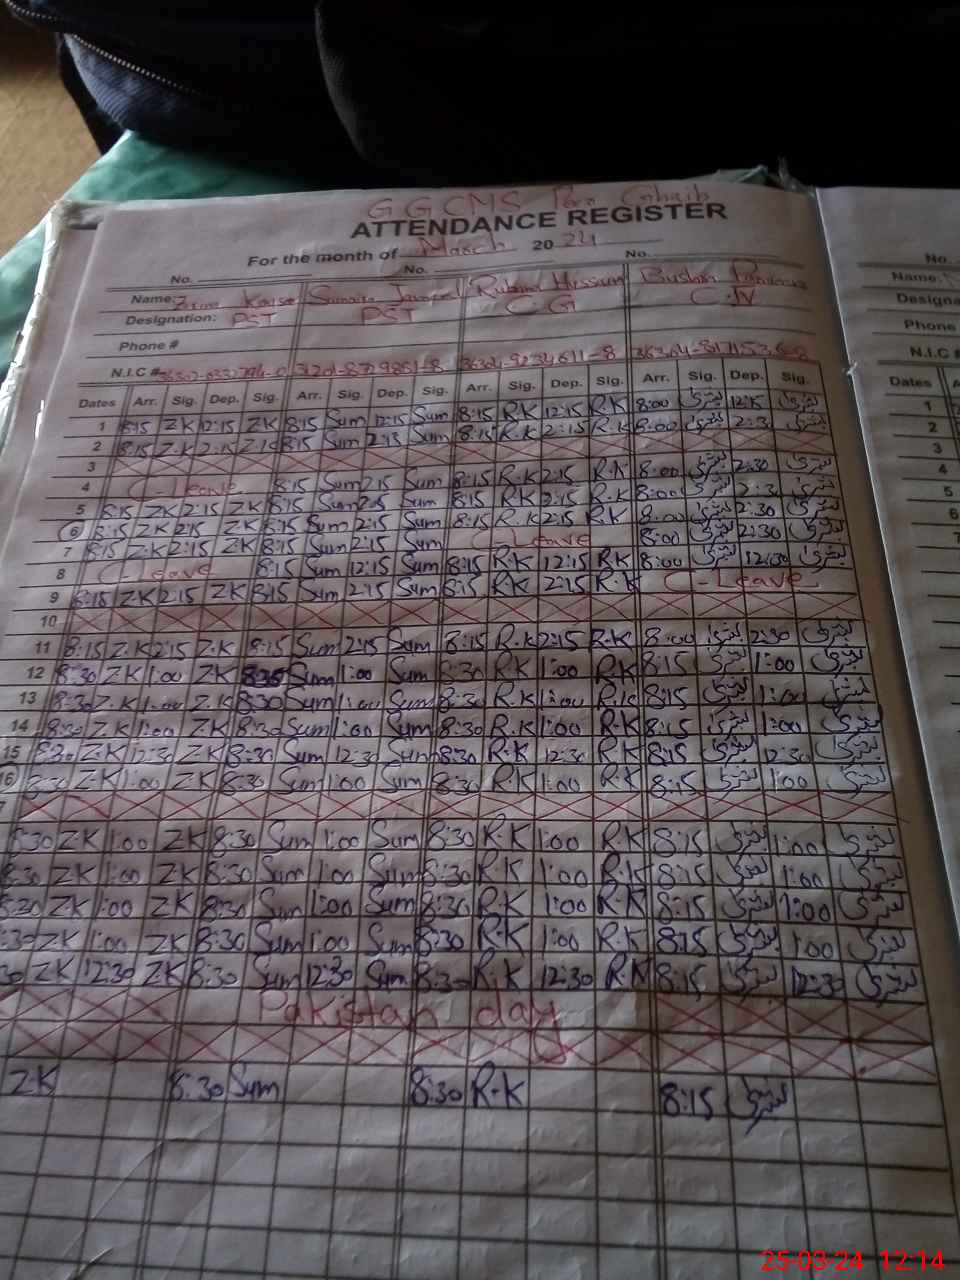 GGCMS
ATTENDANCE REGISTER
For the month of March 2024
No. No. No.
Name: Kausar Sumaira Rubina Hussain Bushra
Designation: PST PST
Phone #
N.I.C #
Dates Arr. Sig. Dep. Sig. Arr. Sig. Dep. Sig. Arr. Sig. Dep. Sig. Arr. Sig. Dep. Sig.
1 8:15 ZK 12:15 ZK 8:15 Sum 12:15 Sum 8:15 R.K 12:15 R.K 8:00 بشریٰ 12:15 بشریٰ
2 8:15 Z.K 2:15 Z.K 8:15 Sum 2:15 Sum 8:15 R.K 2:15 R.K 8:00 بشریٰ 2:30 بشریٰ
3
4 C-Leave 8:15 Sum 2:15 Sum 8:15 R.K 2:15 R.K 8:00 بشریٰ 2:30 بشریٰ
5 8:15 ZK 2:15 ZK 8:15 Sum 2:15 Sum 8:15 RK 2:15 R.K 8:00 بشریٰ 2:30 بشریٰ
6 8:15 ZK 2:15 ZK 8:15 Sum 2:15 Sum 8:15 R.K 2:15 R.K 8:00 بشریٰ 2:30 بشریٰ
7 8:15 Z.K 2:15 ZK 8:15 Sum 2:15 Sum C-Leave 8:00 بشریٰ 2:30 بشریٰ
8 C-Leave 8:15 Sum 12:15 Sum 8:15 R.K 12:15 R.K 8:00 بشریٰ 12:30 بشریٰ
9 8:15 ZK 2:15 ZK 8:15 Sum 2:15 Sum 8:15 RK 2:15 R.K C-Leave
10
11 8:15 Z.K 2:15 Z.K 8:15 Sum 2:15 Sum 8:15 R.K 2:15 R.K 8:00 بشریٰ 2:30 بشریٰ
12 8:30 ZK 1:00 ZK 8:30 Sum 1:00 Sum 8:30 RK 1:00 RK 8:15 بشریٰ 1:00 بشریٰ
13 8:30 Z.K 1:00 Z.K 8:30 Sum 1:00 Sum 8:30 R.K 1:00 R.K 8:15 بشریٰ 1:00 بشریٰ
14 8:30 Z.K 1:00 ZK 8:30 Sum 1:00 Sum 8:30 R.K 1:00 R.K 8:15 بشریٰ 1:00 بشریٰ
15 8:30 ZK 12:30 ZK 8:30 Sum 12:30 Sum 8:30 R.K 12:30 R.K 8:15 بشریٰ 12:30 بشریٰ
16 8:30 ZK 1:00 ZK 8:30 Sum 1:00 Sum 8:30 R.K 1:00 R.K 8:15 بشریٰ 1:00 بشریٰ
7
8:30 ZK 1:00 ZK 8:30 Sum 1:00 Sum 8:30 R.K 1:00 R.K 8:15 بشریٰ 1:00 بشریٰ
:30 ZK 1:00 ZK 8:30 Sum 1:00 Sum 8:30 R.K 1:00 R.K 8:15 بشریٰ 1:00 بشریٰ
8:30 ZK 1:00 ZK 8:30 Sum 1:00 Sum 8:30 R.K 1:00 R.K 8:15 بشریٰ 1:00 بشریٰ
:30 ZK 1:00 ZK 8:30 Sum 1:00 Sum 8:30 R.K 1:00 R.K 8:15 بشریٰ 1:00 بشریٰ
30 ZK 12:30 ZK 8:30 Sum 12:30 Sum 8:30 R.K 12:30 R.K 8:15 بشریٰ 12:30 بشریٰ
Pakistan day
Z.K 8:30 Sum 8:30 R.K 8:15 بشریٰ
No.
Name:
Designa
Phone
N.I.C #
Dates
1
2
3
4
5
6
7
25-03-24 12:14